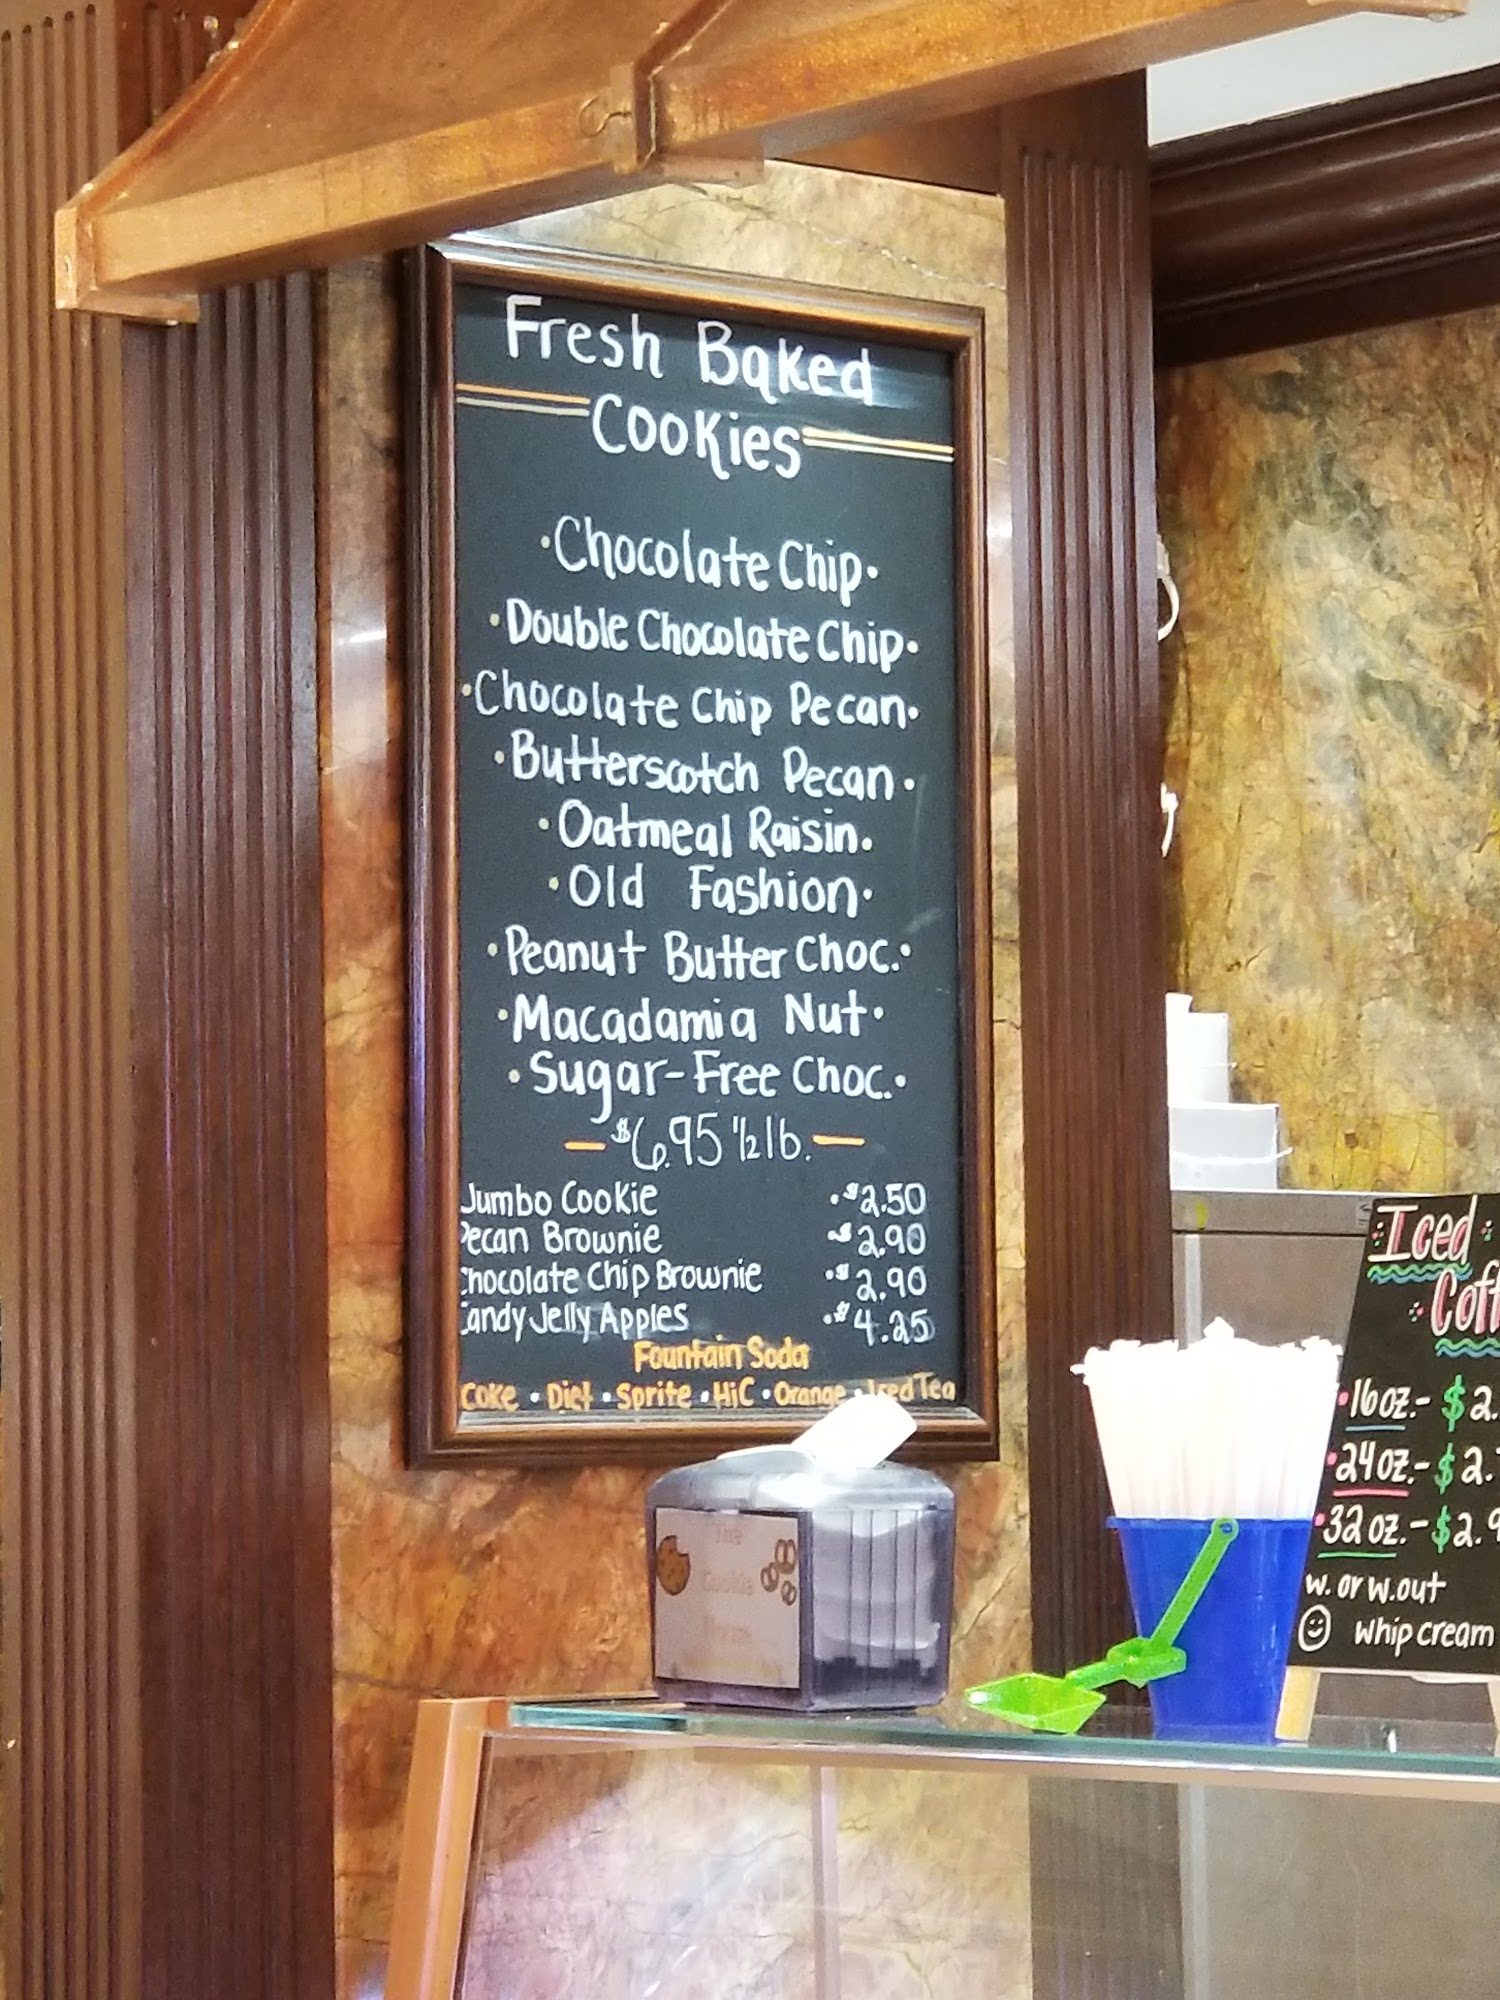 Fresh Baked
Cookies
•Chocolate Chip•
•Double Chocolate Chip•
•Chocolate Chip Pecan•
•Butterscotch Pecan•
•Oatmeal Raisin•
•Old Fashion•
•Peanut Butter Choc.•
•Macadamia Nut•
•Sugar-Free Choc.•
—$6.95 ½ lb.—
Jumbo Cookie •$2.50
Pecan Brownie •$2.90
Chocolate Chip Brownie •$2.90
Candy Jelly Apples •$4.25
Fountain Soda
Coke • Diet • Sprite • HiC • Orange • Iced Tea
The
Cookie
Iced
Coff
•16oz.- $2.
•24oz.- $2.
•32oz.- $2.9
w. or w.out
whip cream